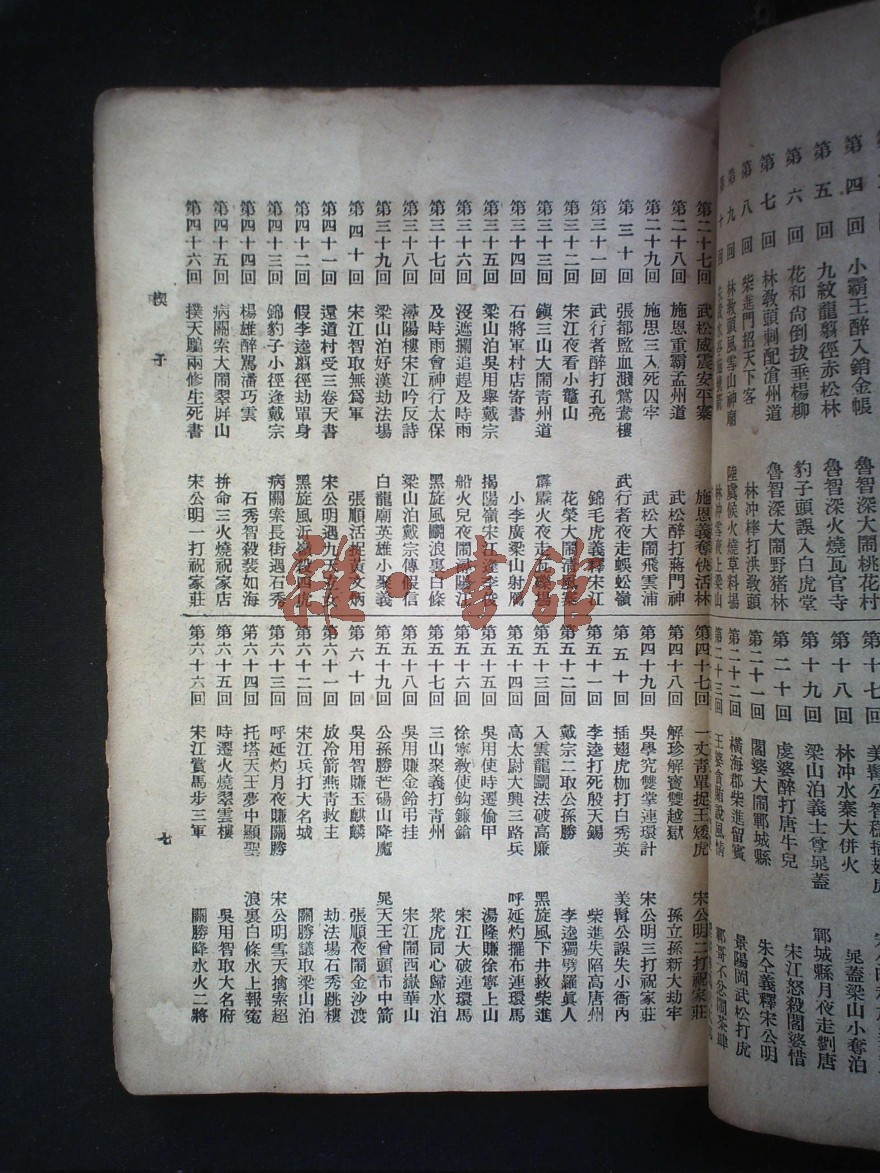 第四回 小霸王醉入銷金帳 魯智深大鬧桃花村
第五回 九紋龍翦徑赤松林 魯智深火燒瓦官寺
第六回 花和尚倒拔垂楊柳 豹子頭誤入白虎堂
第七回 林教頭刺配滄州道 魯智深大鬧野豬林
第八回 柴進門招天下客 林冲棒打洪教頭
第九回 林教頭風雪山神廟 陸虞候火燒草料場
第十回 林冲雪夜上梁山
第十七回 美髯公智穩插翅虎
第十八回 林冲水寨大併火 晁蓋梁山小奪泊
第十九回 梁山泊義士尊晁蓋 鄆城縣月夜走劉唐
第二十回 虔婆醉打唐牛兒 宋江怒殺閻婆惜
第二十一回 閻婆大鬧鄆城縣 朱仝義釋宋公明
第二十二回 橫海郡柴進留賓 景陽岡武松打虎
第二十三回 王婆貪賄說風情 鄆哥不忿鬧茶肆
第二十七回 武松威震安平寨 施恩義奪快活林
第二十八回 施恩重霸孟州道 武松醉打蔣門神
第二十九回 施恩三入死囚牢 武松大鬧飛雲浦
第三十回 張都監血濺鴛鴦樓 武行者夜走蜈蚣嶺
第三十一回 武行者醉打孔亮 錦毛虎義釋宋江
第三十二回 宋江夜看小鼇山 花榮大鬧清風寨
第三十三回 鎮三山大鬧青州道 霹靂火夜走瓦礫場
第三十四回 石將軍村店寄書 小李廣梁山射鴈
第三十五回 梁山泊吳用舉戴宗 揭陽嶺宋江逢李俊
第三十六回 沒遮攔追趕及時雨 船火兒夜鬧潯陽江
第三十七回 及時雨會神行太保 黑旋風鬬浪裏白條
第三十八回 潯陽樓宋江吟反詩 梁山泊戴宗傳假信
第三十九回 梁山泊好漢劫法場 白龍廟英雄小聚義
第四十回 宋江智取無為軍 張順活捉黃文炳
第四十一回 還道村受三卷天書 宋公明遇九天玄女
第四十二回 假李逵翦徑劫單身 黑旋風沂嶺殺四虎
第四十三回 錦豹子小徑逢戴宗 病關索長街遇石秀
第四十四回 楊雄醉罵潘巧雲 石秀智殺裴如海
第四十五回 病關索大鬧翠屏山 拚命三火燒祝家店
第四十六回 撲天鵰兩修生死書 宋公明一打祝家莊
第四十七回 一丈青單捉王矮虎 宋公明二打祝家莊
第四十八回 解珍解寶雙越獄 孫立孫新大劫牢
第四十九回 吳學究雙掌連環計 宋公明三打祝家莊
第五十回 插翅虎枷打白秀英 美髯公誤失小衙內
第五十一回 李逵打死殷天錫 柴進失陷高唐州
第五十二回 戴宗二取公孫勝 李逵獨劈羅真人
第五十三回 入雲龍鬬法破高廉 黑旋風下井救柴進
第五十四回 高太尉大興三路兵 呼延灼擺布連環馬
第五十五回 吳用使時遷偷甲 湯隆賺徐寧上山
第五十六回 徐寧教使鈎鐮鎗 宋江大破連環馬
第五十七回 三山聚義打青州 衆虎同心歸水泊
第五十八回 吳用賺金鈴弔挂 宋江鬧西嶽華山
第五十九回 公孫勝芒碭山降魔 晁天王曾頭市中箭
第六十回 吳用智賺玉麒麟 張順夜鬧金沙渡
第六十一回 放冷箭燕青救主 劫法場石秀跳樓
第六十二回 宋江兵打大名城 關勝議取梁山泊
第六十三回 呼延灼月夜賺關勝 宋公明雪天擒索超
第六十四回 托塔天王夢中顯聖 浪裏白條水上報冤
第六十五回 時遷火燒翠雲樓 吳用智取大名府
第六十六回 宋江賞馬步三軍 關勝降水火二將
楔子
七
雜·書館